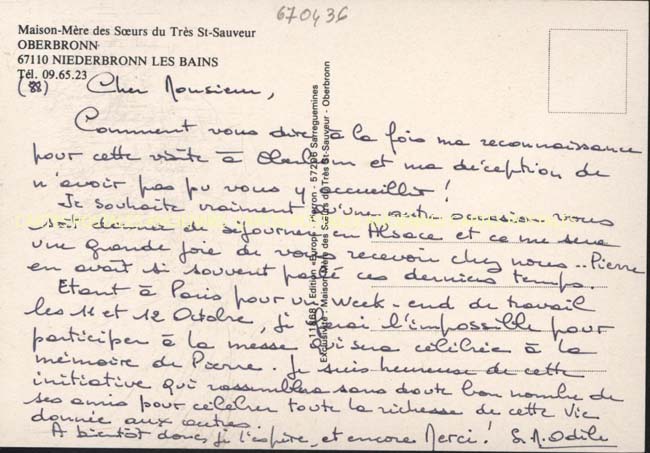 670436
Maison-Mère des Sœurs du Très St-Sauveur
OBERBRONN
67110 NIEDERBRONN LES BAINS
Tél. 09.65.23
(88)
Cher Monsieur,
Comment vous dire à la fois ma reconnaissance
pour cette visite à Oberbronn et ma déception de
n'avoir pas pu vous y accueillir !
Je souhaite vraiment qu'une autre occasion vous
soit donnée de séjourner en Alsace et ce me sera
une grande joie de vous recevoir chez nous... Pierre
en avait si souvent parlé ces derniers temps.
Etant à Paris pour un week-end de travail
les 11 et 12 Octobre, je ferai l'impossible pour
participer à la messe qui sera célébrée à la
mémoire de Pierre. Je suis heureuse de cette
initiative qui rassemblera sans doute bon nombre de
ses amis pour célébrer toute la richesse de cette Vie
donnée aux autres.
A bientôt donc, je l'espère, et encore Merci ! S. M. Odile
Edition «Europ» - Pierron - 57206 Sarreguemines
Exclusivité : Maison-Mère des Sœurs du Très St-Sauveur - Oberbronn